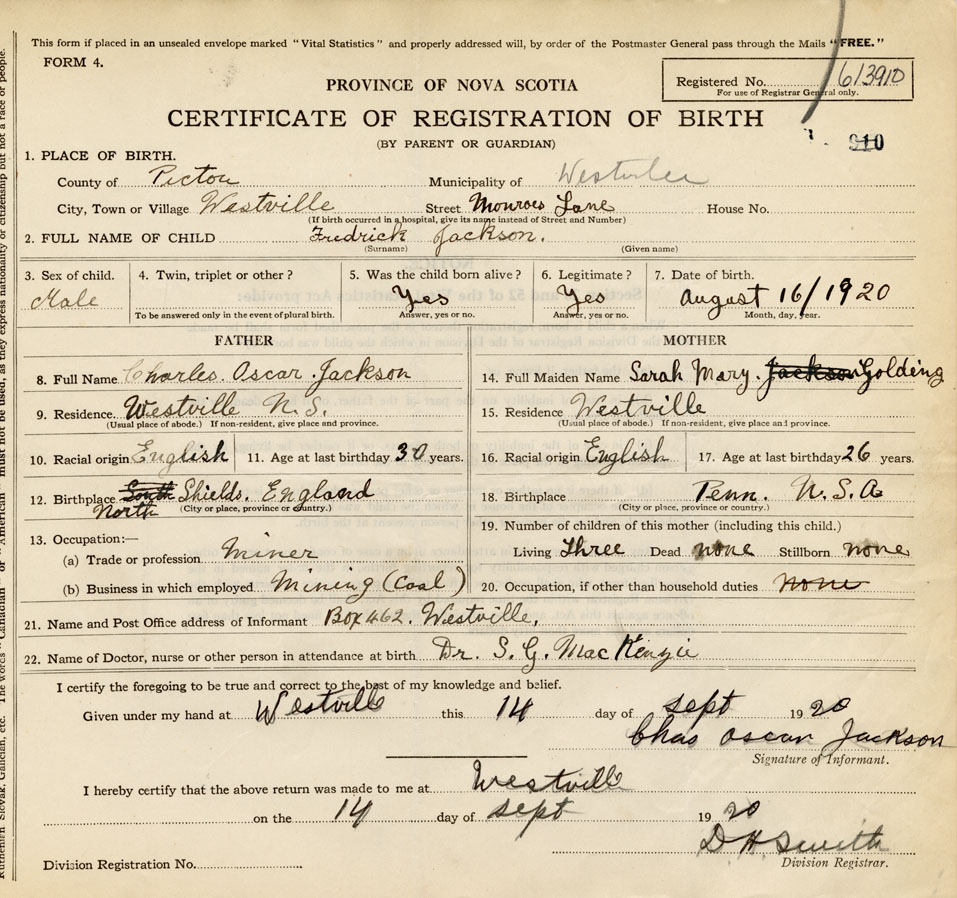 This form if placed in an unsealed envelope marked "Vital Statistics" and properly addressed will, by order of the Postmaster General pass through the Mails "FREE."
FORM 4.
Registered No. 613910
For use of Registrar General only.
PROVINCE OF NOVA SCOTIA
CERTIFICATE OF REGISTRATION OF BIRTH
(BY PARENT OR GUARDIAN)
910
1. PLACE OF BIRTH.
County of Pictou Municipality of Westville
City, Town or Village Westville Street Monroes Lane House No.
(If birth occurred in a hospital, give its name instead of Street and Number)
2. FULL NAME OF CHILD Fredrick Jackson.
(Surname) (Given name)
3. Sex of child. 4. Twin, triplet or other? 5. Was the child born alive? 6. Legitimate? 7. Date of birth.
Male Yes Yes August 16/1920
To be answered only in the event of plural birth. Answer, yes or no. Answer, yes or no. Month, day, year.
FATHER
8. Full Name Charles. Oscar. Jackson
9. Residence. Westville N.S.
(Usual place of abode.) If non-resident, give place and province.
10. Racial origin English 11. Age at last birthday 30 years.
12. Birthplace South Shields. England
North (City or place, province or country.)
13. Occupation:—
(a) Trade or profession. miner
(b) Business in which employed Mining (Coal)
MOTHER
14. Full Maiden Name Sarah Mary. Jackson Golding
15. Residence Westville
(Usual place of abode.) If non-resident, give place and province.
16. Racial origin English 17. Age at last birthday 26 years.
18. Birthplace Penn. U.S.A
(City or place, province or country.)
19. Number of children of this mother (including this child.)
Living Three Dead none Stillborn none
20. Occupation, if other than household duties none
21. Name and Post Office address of Informant Box 462. Westville,
22. Name of Doctor, nurse or other person in attendance at birth Dr. S. G. MacKenzie
I certify the foregoing to be true and correct to the best of my knowledge and belief.
Given under my hand at Westville this 14 day of sept 1920
Chas Oscar Jackson
Signature of Informant.
I hereby certify that the above return was made to me at Westville
on the 14 day of sept 1920
D H Smith
Division Registrar.
Division Registration No.
Ruthenian, Slovak, Galician, etc. The words "Canadian" or "American" must not be used, as they express nationality or citizenship but not a race or people.